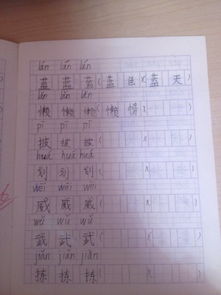 lán lán lán
蓝 蓝 蓝 ( 蓝 色 ) ( 蓝 天 )
lǎn lǎn lǎn
懒 懒 懒 ( 懒 惰 ) (
pī pī pī
披 披 披 ( ) ( )
huá huá huá
划 划 划 ( ) ( )
wēi wēi wēi
威 威 威 ( ) ( )
wǔ wǔ wǔ
武 武 武 ( ) ( )
jiǎn jiǎn jiǎn
拣 拣 拣 ( ) ( )